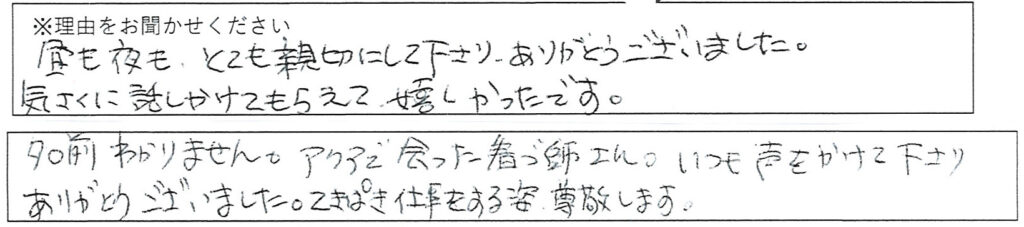 ※理由をお聞かせください
昼も夜も、とても親切にして下さり、ありがとうございました。
気さくに話しかけてもらえて嬉しかったです。
名前わかりません。アクアで会った看ゴ師さん。いつも声をかけて下さり
ありがとうございました。てきぱき仕事をする姿、尊敬します。